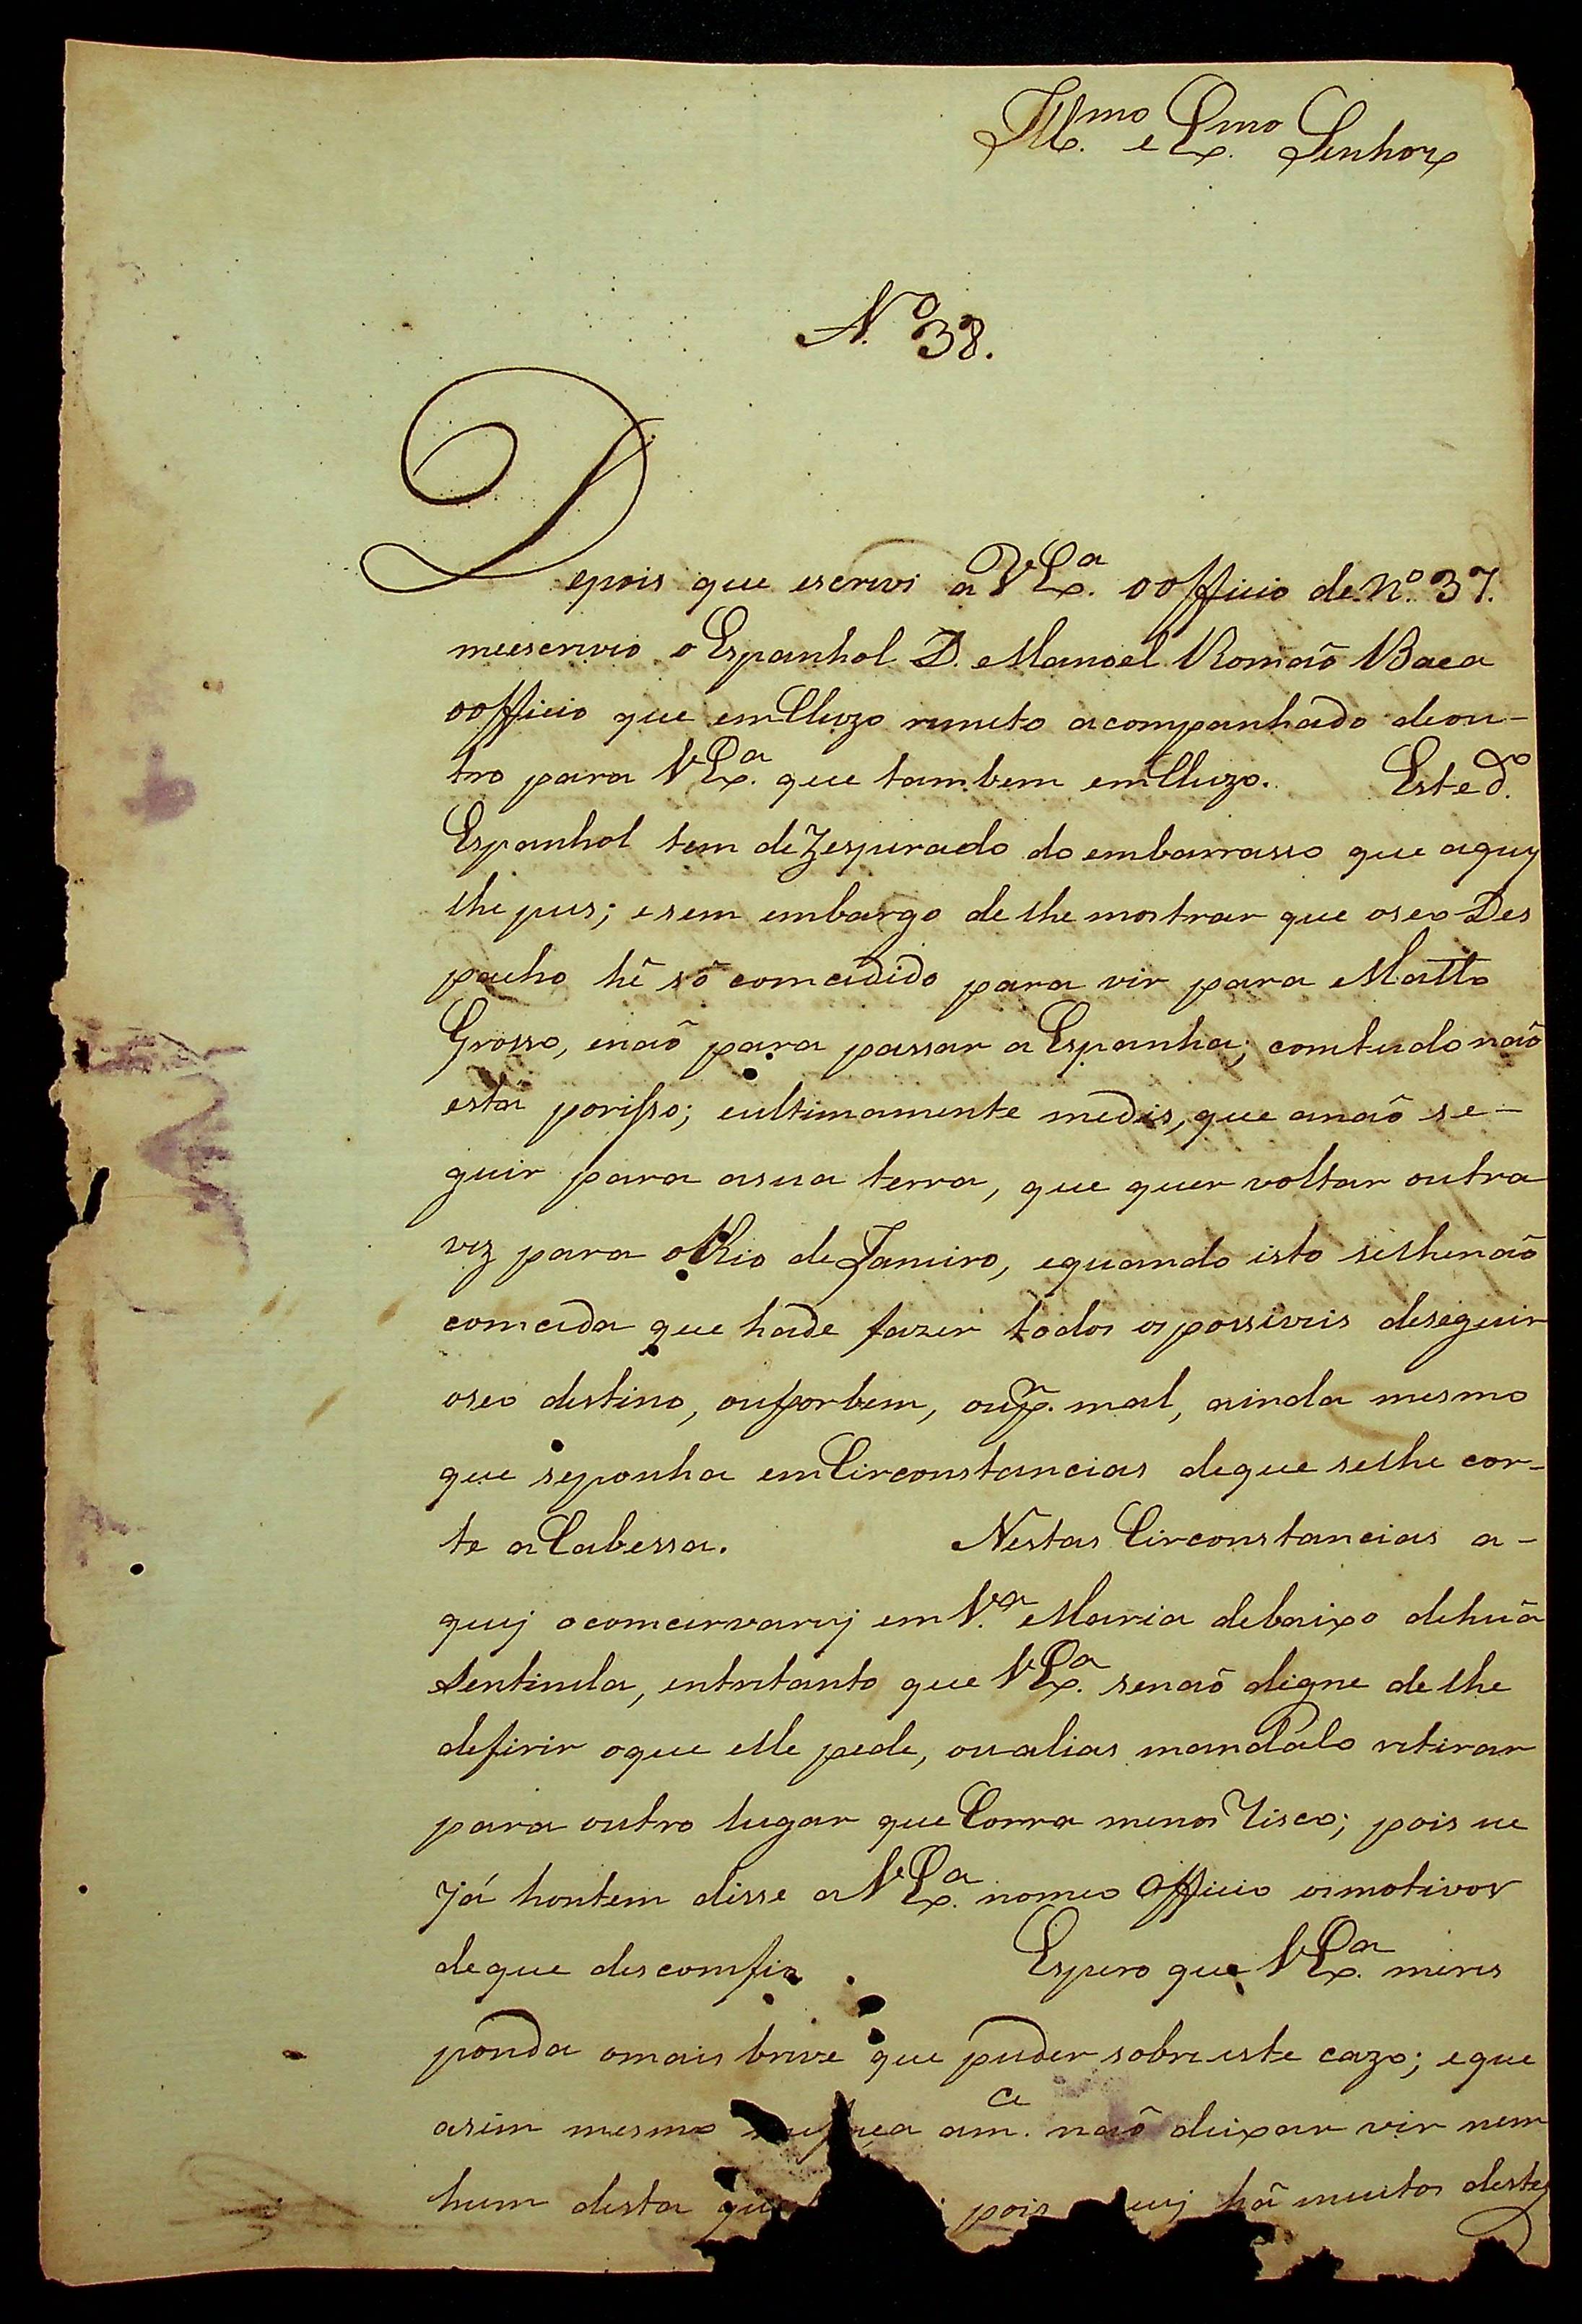 Ill.mo e Ex.mo Senhor
N.o 38.
Depois que escrevi a VEx.a o officio de N.o 37.
meescrevio o Espanhol D. Manoel Romaõ Baea
oofficio que emCluzo remeto acompanhado deou-
tro para VEx.a que tambem emCluzo. Este d.o
Espanhol tem deZesperado do embarrasso que aquy
lhe pus; esem embargo de lhe mostrar que oseo Des
pacho hê sô comcedido para vir para Matto
Grosso, enaõ para passar a Espanha; comtudo naõ
está porisso; eultimamente medis, que anaõ se-
guir para asua terra, que quer voltar outra
vez para oRio de Janeiro, equando isto selhenaõ
comceda que hade fazer todos ospossiveis deseguir
oseo destino, ouporbem, oup.r mal, ainda mesmo
que seponha emCirconstancias deque selhe cor-
te aCabessa. Nestas Circonstancias a-
quij oconcervarej em V.a Maria debaixo dehuã
Sentinela, entretanto que VEx.a senaõ digne de lhe
deferir oque elle pede, oualias mandalo retirar
para outro lugar que Corra menos Risco; pois ne
já hontem disse a VEx.a nomeo Officio osmotivos
deque descomfio. Espero que VEx.a meres
ponda omais breve que puder sobre este cazo; eque
asim mesmo am.ce naõ deixar vir nem
hum desta pois há muitos destes